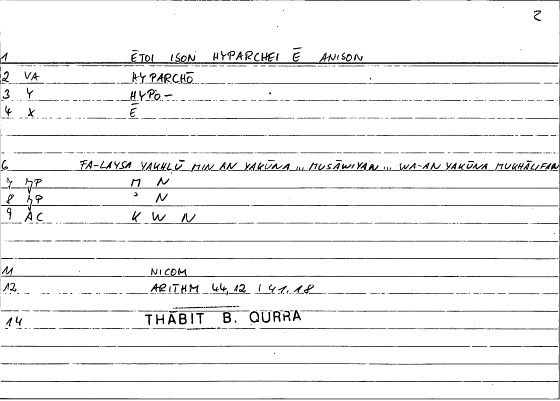 2
1 ĒTOI ISON HYPARCHEI Ē ANISON
2 VA HYPARCHŌ
3 Y HYPO-
4 X Ē
6 FA-LAYSA YAKHLŪ MIN AN YAKŪNA ... MUSĀWIYAN ... WA-AN YAKŪNA MUKHĀLIFAN
7 M N
8 ʾ N
9 AC K W N
11 NICOM
12 ARITHM 44,12 / 41.18
14 THĀBIT B. QURRA